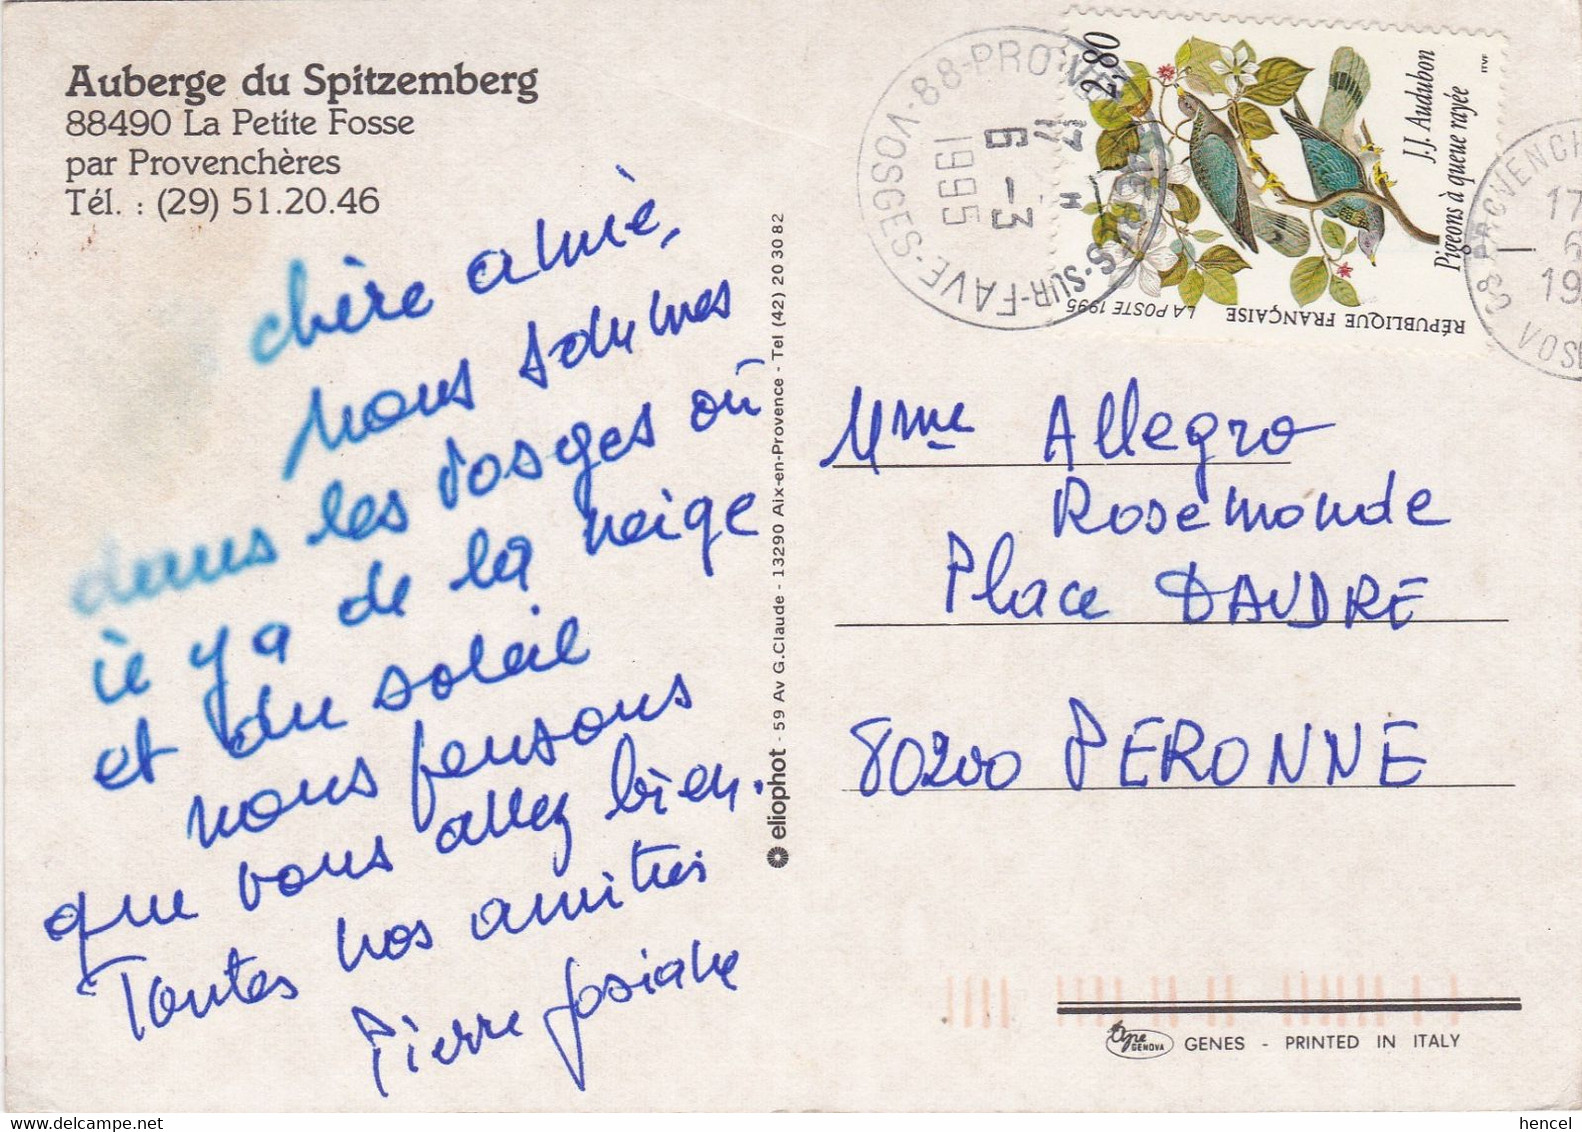 Auberge du Spitzemberg
88490 La Petite Fosse
par Provenchères
Tél. : (29) 51.20.46
chère amie,
nous sommes
dans les Vosges où
il y a de la neige
et du soleil
nous pensons
que vous allez bien.
Toutes nos amitiés
Pierre Josiane
eliophot - 59 Av G.Claude - 13290 Aix-en-Provence - Tel (42) 20 30 82
2,80
J.J. Audubon
Pigeons à queue rayée
ITVF
LA POSTE 1995
RÉPUBLIQUE FRANÇAISE
88-PROVENCHERES-SUR-FAVE-VOSGES
17 H
6 -3
1995
88 PROVENCH
17
6
19
VOS
Mme Allegro
Rosemonde
Place DAUDRE
80200 PERONNE
GENOVA
GENES - PRINTED IN ITALY
hencel